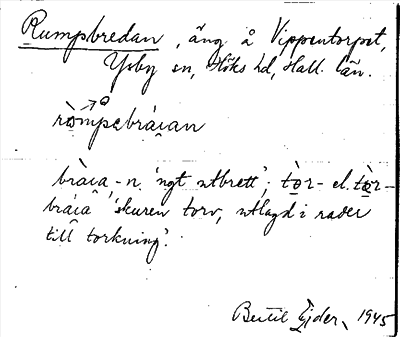 Rumpsbredan, äng å Vippentorpet,
Ysby sn, Höks hd, Hall. län.
ròmpsbráian
bràia -n. 'ngt utbrett'; tòr- el. tòr-
bráia 'skuren torv, utlagd i rader
till torkning'.
Bertil Ejder, 1945